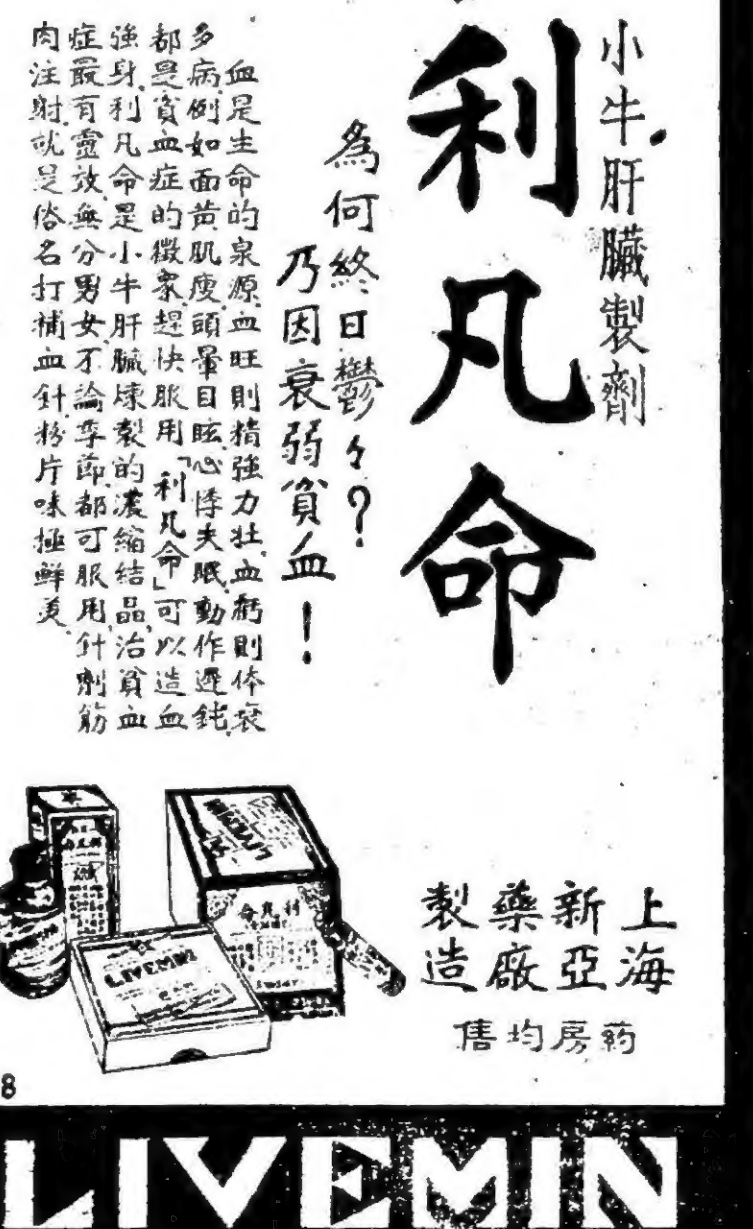 小牛肝臟製劑
利凡命
為何終日鬱々？
乃因衰弱貧血！
血是生命的泉源，血旺則精強力壯，血虧則体衰
多病，例如面黃肌瘦，頭暈目眩，心悸失眠，動作遲鈍，
都是貧血症的徵象，趕快服用「利凡命」可以造血
強身，利凡命是小牛肝臟煉製的濃縮結晶，治貧血
症最有靈效，無分男女，不論季節，都可服用，針劑筋
肉注射，就是俗名打補血針，粉片味極鮮美，
上海
新亞
藥廠
製造
葯房均售
LIVEMIN
8
LIVEMIN